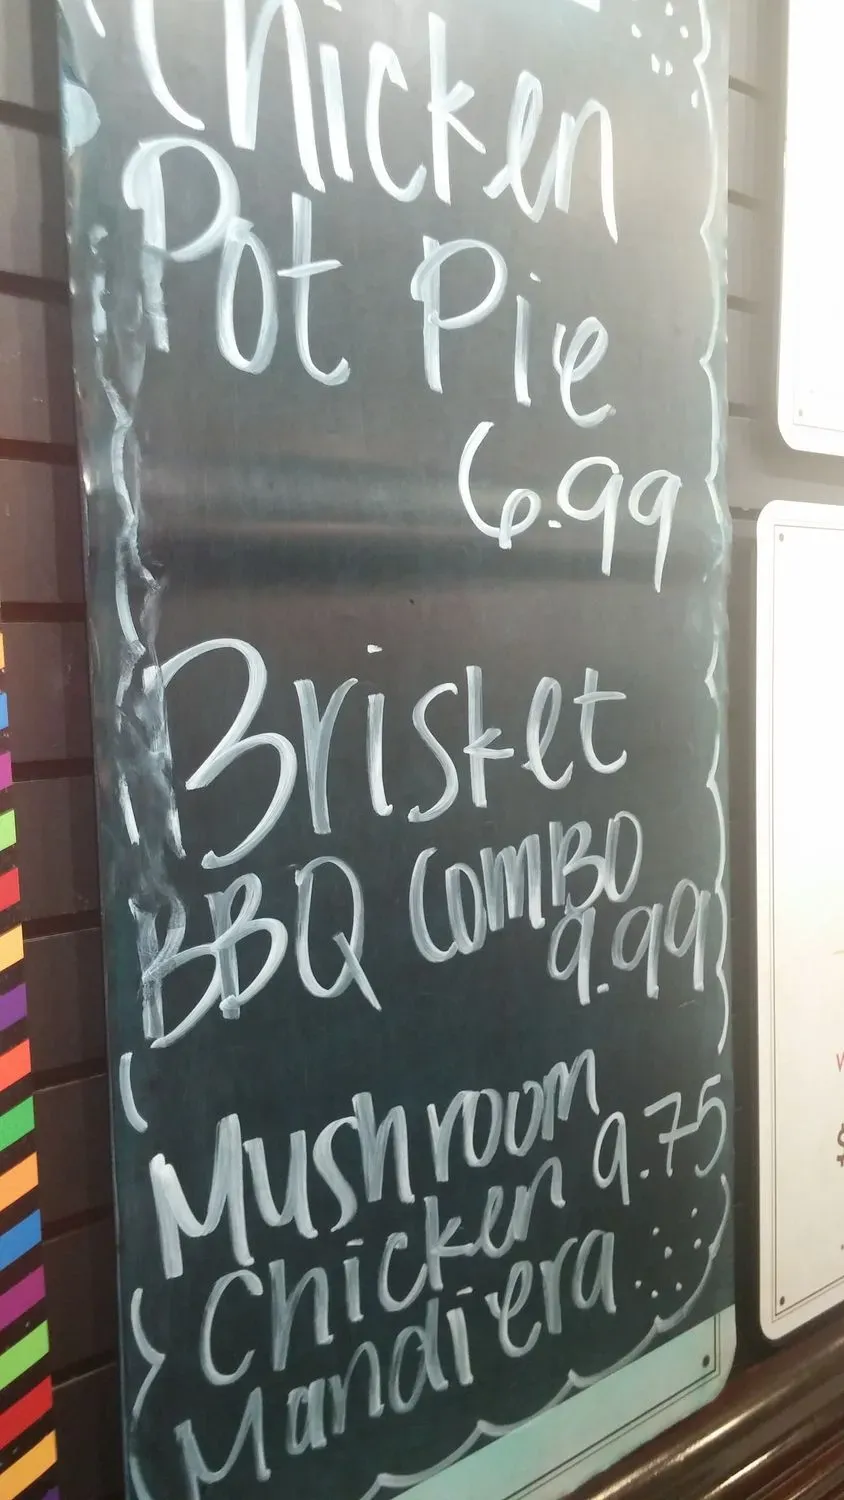 Chicken
Pot Pie
6.99
Brisket
BBQ COMBO
9.99
Mushroom
Chicken 9.75
Mandiera
W
$